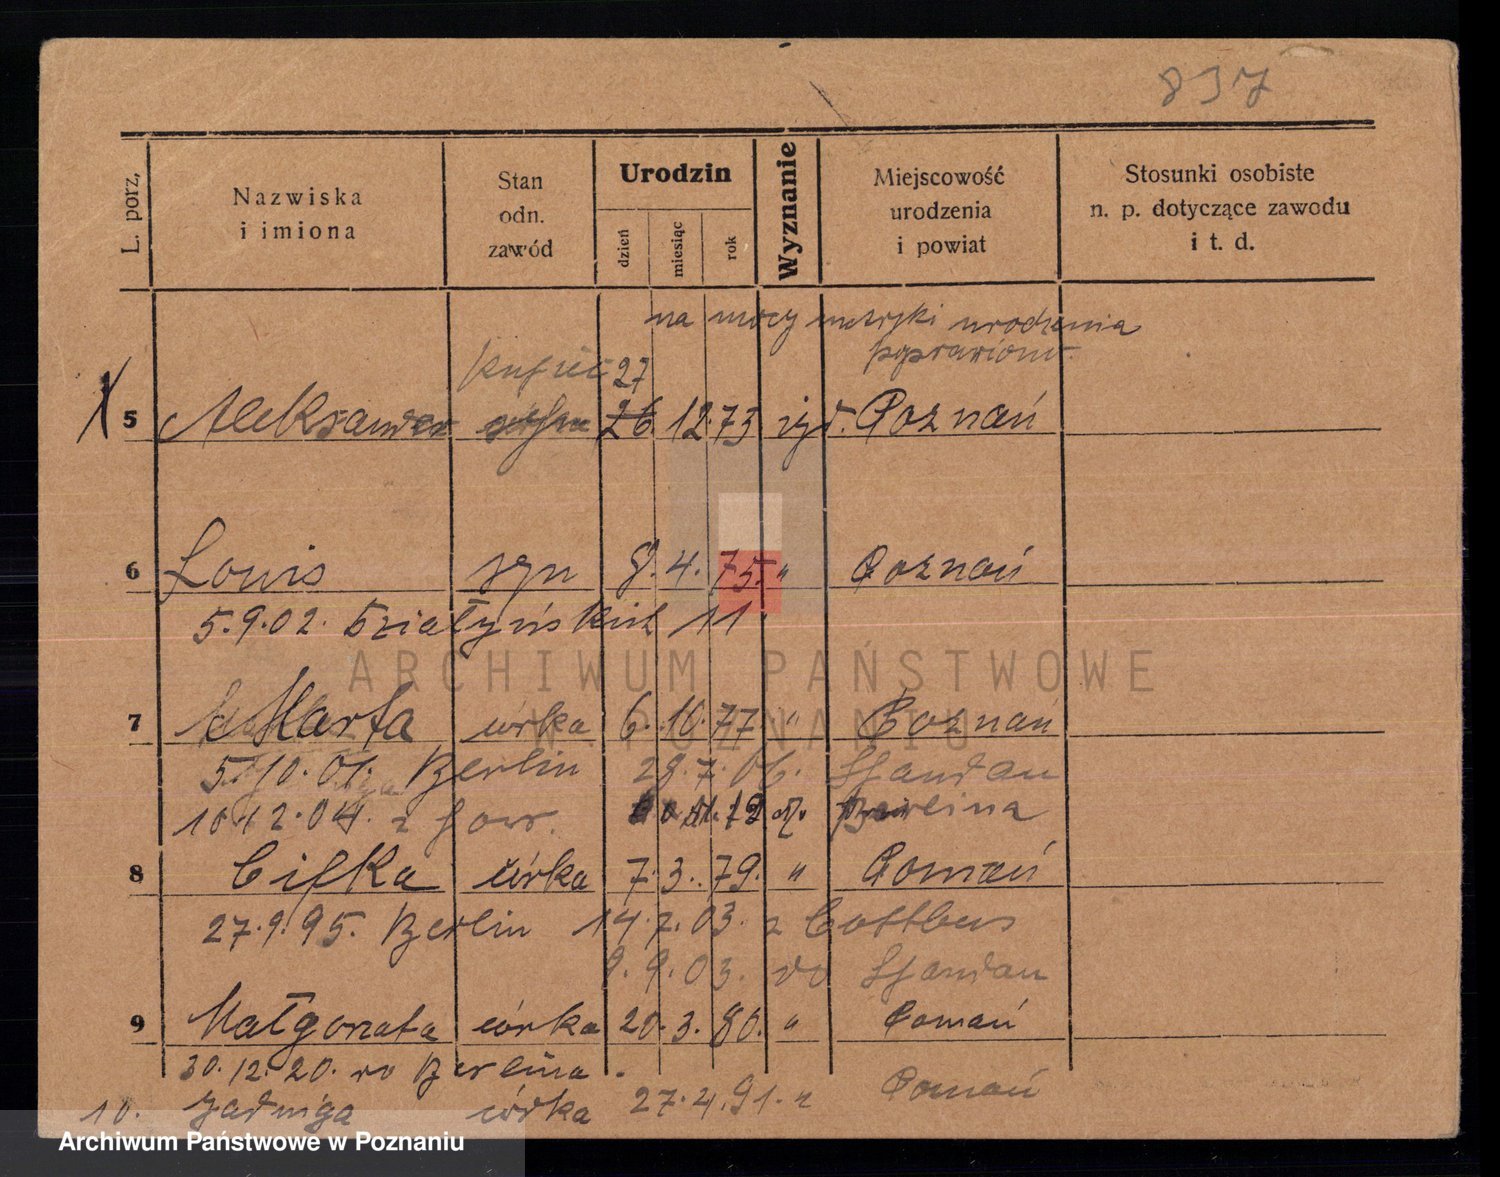 837
L. porz,
Nazwiska
i imiona
Stan
odn.
zawód
Urodzin
dzień
miesiąc
rok
Wyznanie
Miejscowość
urodzenia
i powiat
Stosunki osobiste
n. p. dotyczące zawodu
i t. d.
na mocy metryki urodzenia
poprawiono.
kupiec 27
5 Aleksander 26 12.73 żyd. Poznań
6 Louis syn 8. 4. 75. " Poznań
5.9.02. Działyńskich 11
7 Marta córka 6. 10. 77. " Poznań
5.10.01. Berlin 28.7.06. Spandau
10.12.04. z Berlina
8 Cifka córka 7. 3. 79. " Poznań
27.9.95. Berlin 14.7.03. z Cottbus
9.9.03. do Spandau
9 Małgorzata córka 20. 3. 80. " Poznań
30.12.20. do Berlina.
10. Jadwiga córka 27.4.91. " Poznań
ARCHIWUM PAŃSTWOWE
W POZNANIU
Archiwum Państwowe w Poznaniu